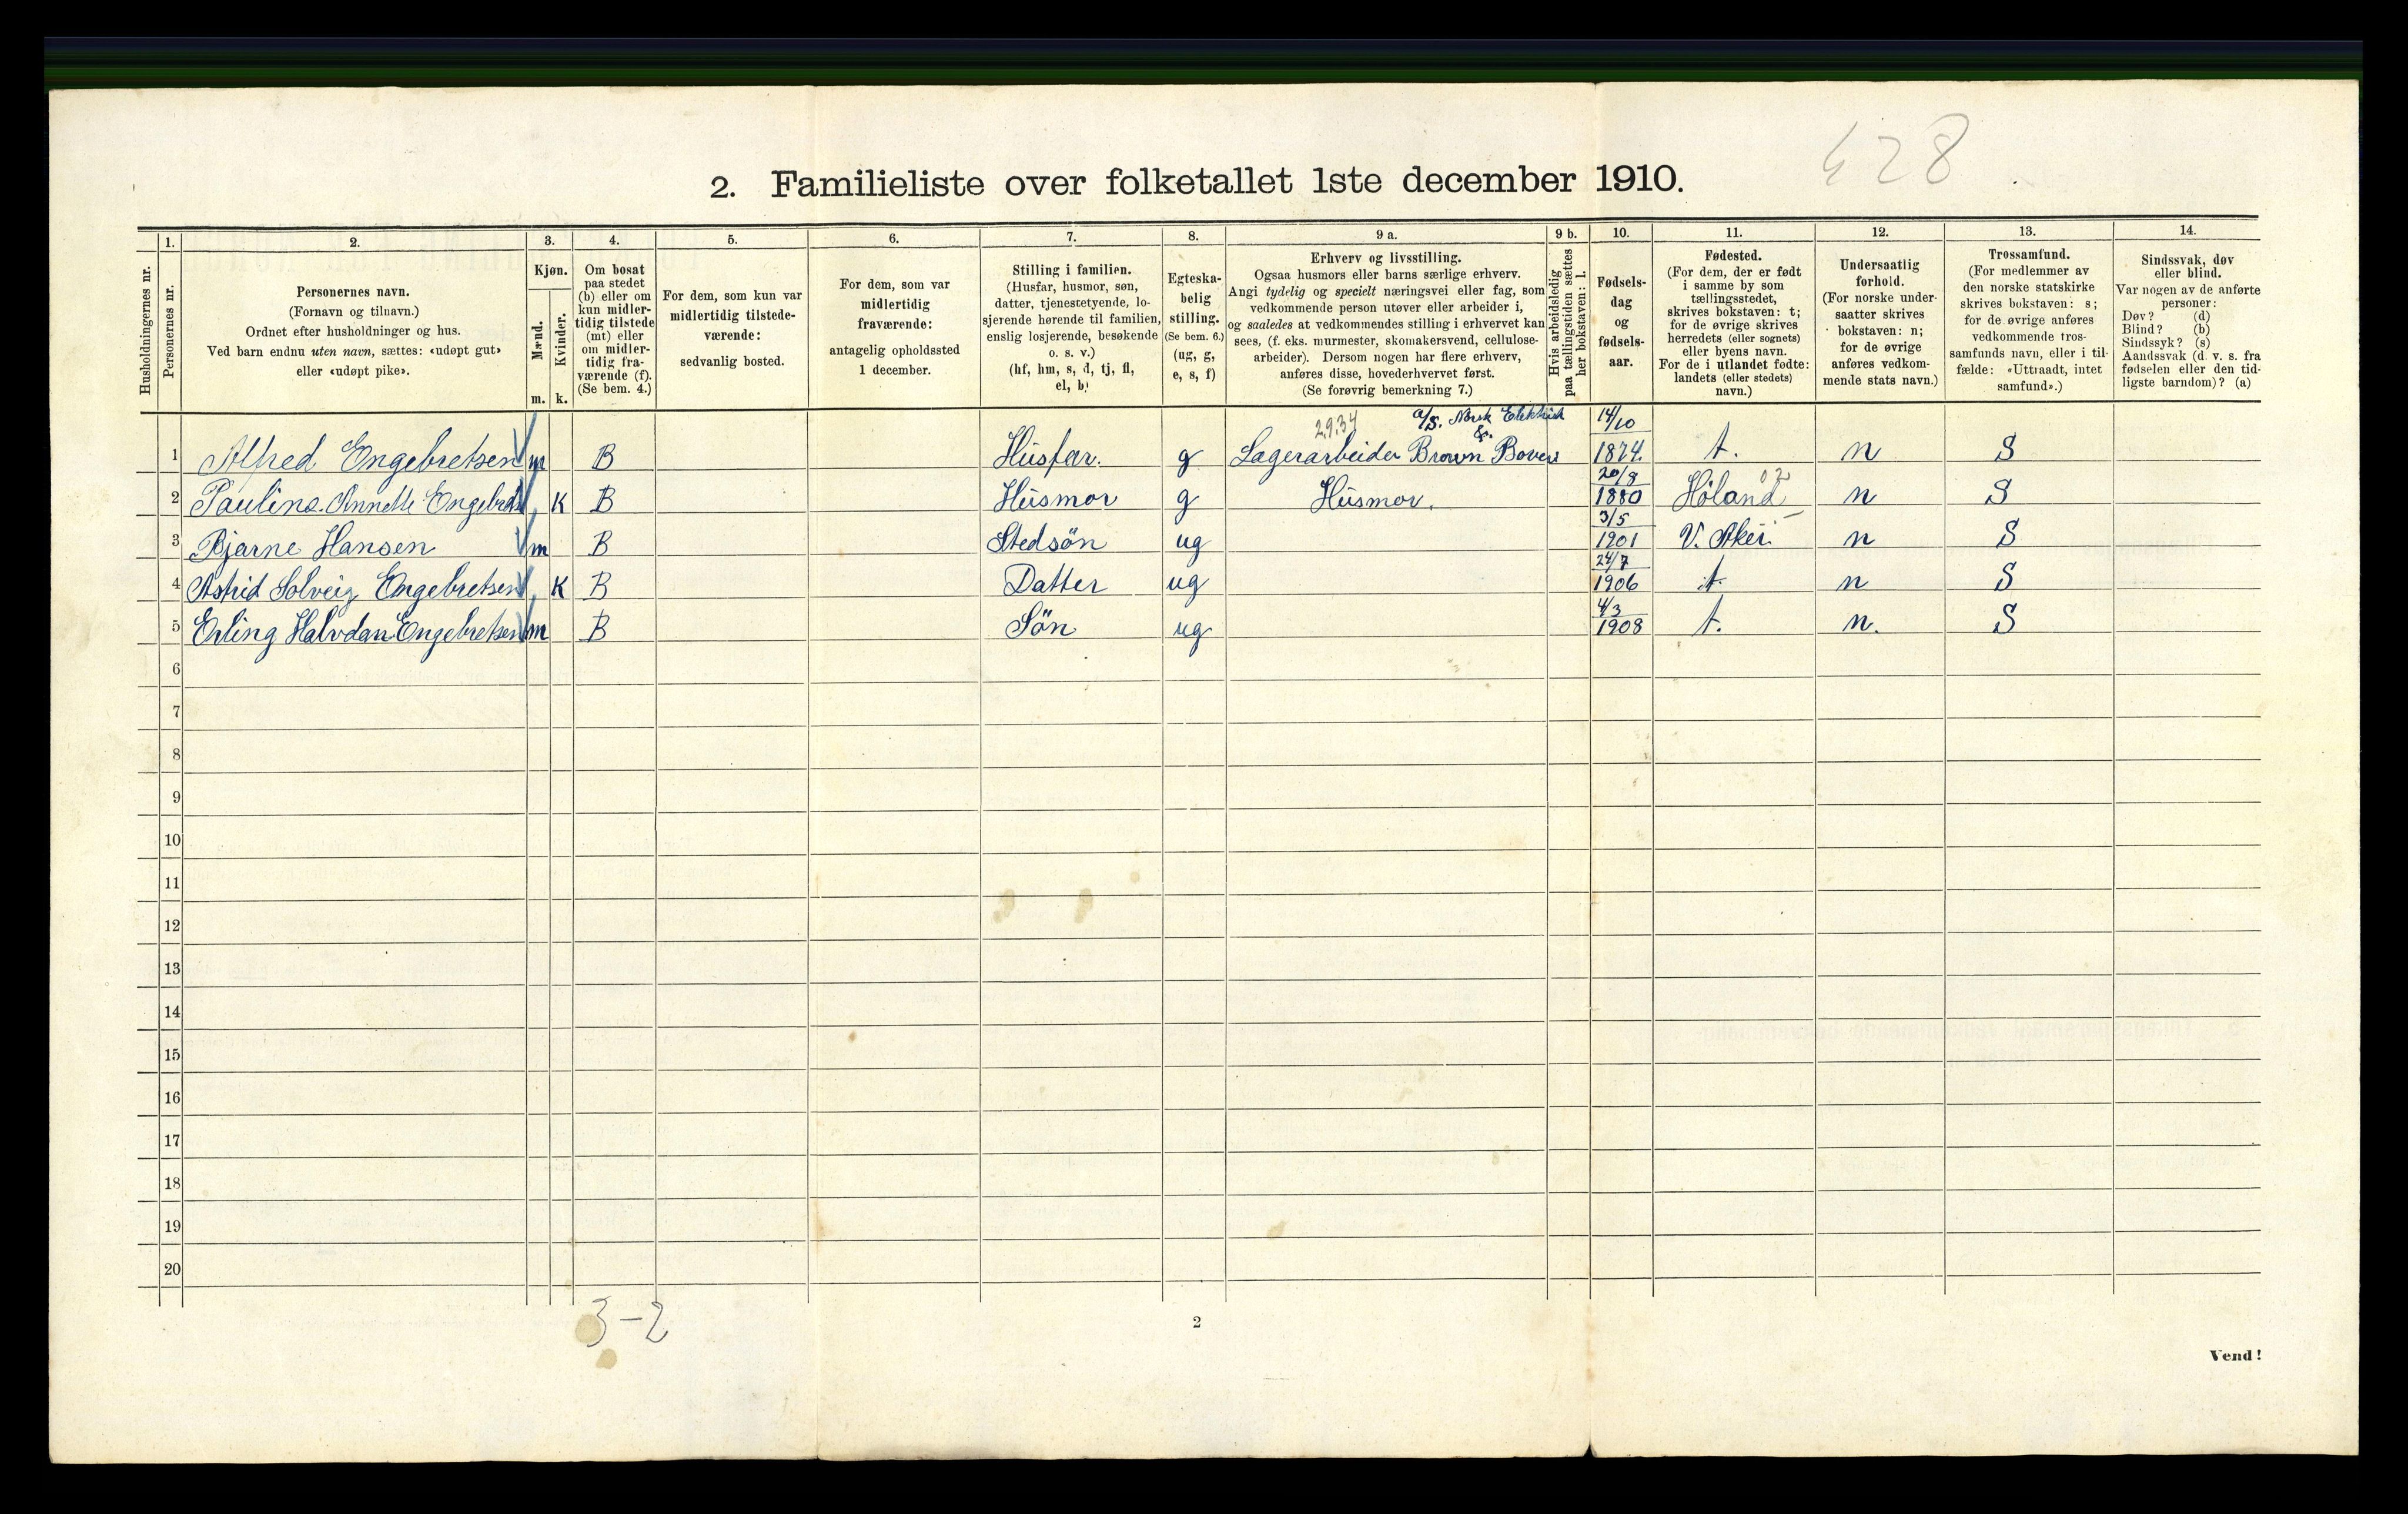 428
2. Familieliste over folketallet 1ste december 1910.
Husholdningernes nr.
1.
Personernes nr.
2.
Personernes navn.
(Fornavn og tilnavn.)
Ordnet efter husholdninger og hus.
Ved barn endnu uten navn, sættes: «udøpt gut»
eller «udøpt pike».
3.
Kjøn.
Mænd.
Kvinder.
m. k.
4.
Om bosat
paa stedet
(b) eller om
kun midler-
tidig tilstede
(mt) eller
om midler-
tidig fra-
værende (f).
(Se bem. 4.)
5.
For dem, som kun var
midlertidig tilstede-
værende:
sedvanlig bosted.
6.
For dem, som var
midlertidig
fraværende:
antagelig opholdssted
1 december.
7.
Stilling i familien.
(Husfar, husmor, søn,
datter, tjenestetyende, lo-
sjerende hørende til familien,
enslig losjerende, besøkende
o. s. v.)
(hf, hm, s, d, tj, fl,
el, b)
8.
Egteska-
belig
stilling.
(Se bem. 6.)
(ug, g,
e, s, f)
9 a.
Erhverv og livsstilling.
Ogsaa husmors eller barns særlige erhverv.
Angi tydelig og specielt næringsvei eller fag, som
vedkommende person utøver eller arbeider i,
og saaledes at vedkommendes stilling i erhvervet kan
sees, (f. eks. murmester, skomakersvend, cellulose-
arbeider). Dersom nogen har flere erhverv,
anføres disse, hovederhvervet først.
(Se forøvrig bemerkning 7.)
9 b.
Hvis arbeidsledig
paa tællingstiden sættes
her bokstaven: l.
10.
Fødsels-
dag
og
fødsels-
aar.
11.
Fødested.
(For dem, der er født
i samme by som
tællingsstedet,
skrives bokstaven: t;
for de øvrige skrives
herredets (eller sognets)
eller byens navn.
For de i utlandet fødte:
landets (eller stedets)
navn.)
12.
Undersaatlig
forhold.
(For norske under-
saatter skrives
bokstaven: n;
for de øvrige
anføres vedkom-
mende stats navn.)
13.
Trossamfund.
(For medlemmer av
den norske statskirke
skrives bokstaven: s;
for de øvrige anføres
vedkommende tros-
samfunds navn, eller i til-
fælde: «Uttraadt, intet
samfund».)
14.
Sindssvak, døv
eller blind.
Var nogen av de anførte
personer:
Døv? (d)
Blind? (b)
Sindssyk? (s)
Aandssvak (d. v. s. fra
fødselen eller den tid-
ligste barndom)? (a)
2.9.34 a/s. Norsk Elektrisk & 14/10
1 Alfred Engebretsen m B Husfar. g Lagerarbeider Brown Boveri 1874. t. n S
20/8 02
2 Pauline Annette Engebrets K B Husmor g Husmor. 1880 Høland n S
3/5
3 Bjarne Hansen m B Stedsøn ug 1901 V. Aker. n S
24/7
4 Astrid Solveig Engebretsen K B Datter ug 1906 t. n S
4/3
5 Erling Halvdan Engebretsen m B Søn ug 1908 t. n. S
6
7
8
9
10
11
12
13
14
15
16
17
18
19
20
3-2
2
Vend!